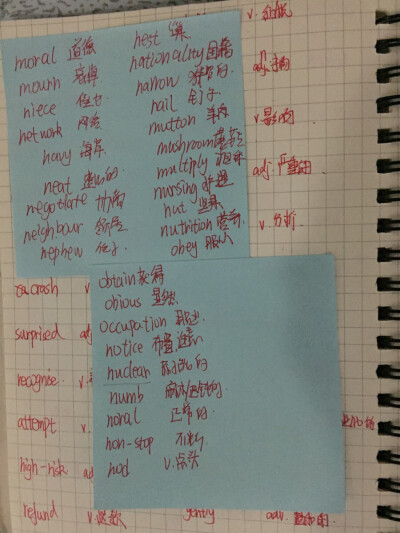 moral 道德
mourn 哀悼
niece 侄女
network 网络
navy 海军
neat 整齐的
negotiate 协商
neighbour 邻居
nephew 侄子
nest 巢
nationality 国籍
narrow 狭窄的
nail 钉子
mutton 羊肉
mushroom 蘑菇
multiply
nursing 护理
nut 坚果
nutrition 营养
obey 服从
obtain 获得
obious 显然
occupation 职业
notice 布告,注意
nuclear
numb 麻木的
noral 正常的
non-stop 不断
nod v.点头
v. 征服
adj.
v.影响
adj.严重的
v. 分析
crash v.
surprised ad
recognise. v.
attempt v.
high-risk ad
refund v.退款
gently adv. 温和的